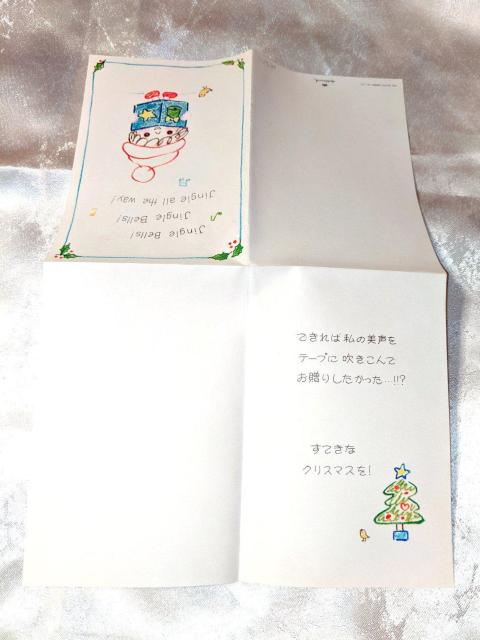 Jingle Bells!
Jingle Bells!
Jingle all the way!
できれば私の美声を
テープに吹きこんで
お贈りしたかった…!!?
すてきな
クリスマスを!